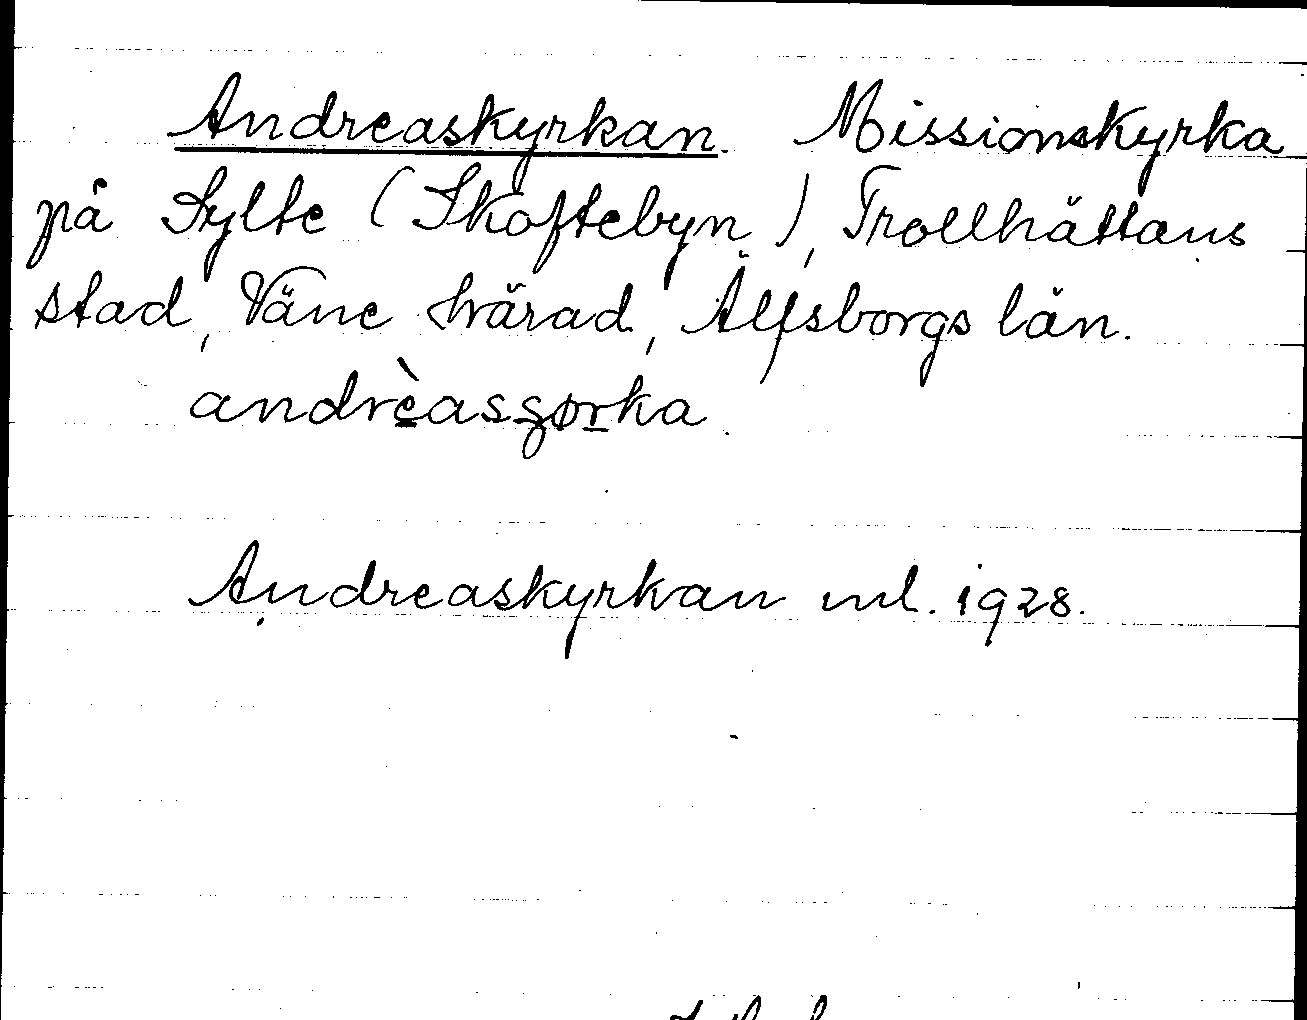 Andreaskyrkan. Missionskyrka
på Sylte (Skoftebyn), Trollhättans
stad, Väne härad, Älfsborgs län.
andrèasgørka.
Andreaskyrkan ml. 1928.